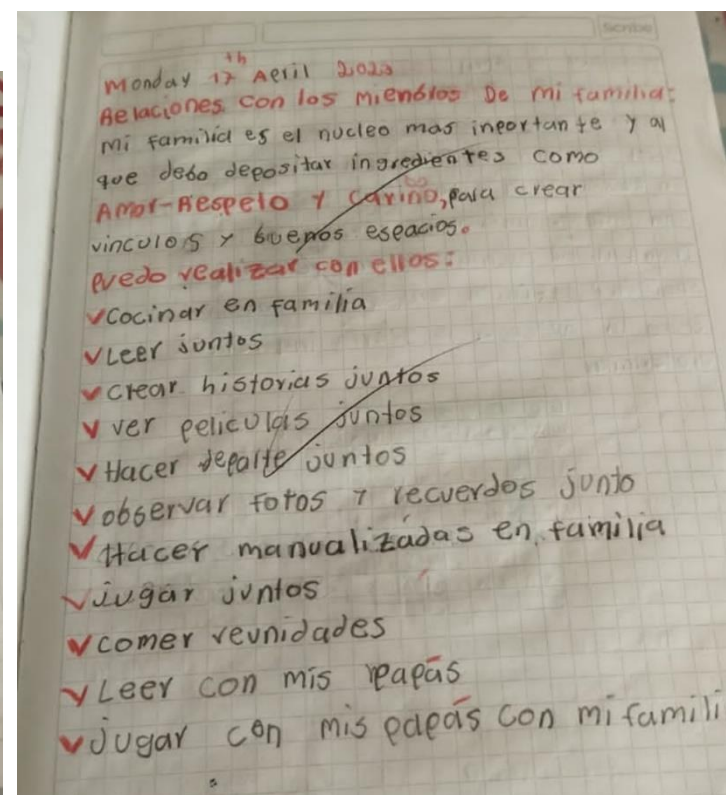 Scribe
Monday 17th Aeril 2023
Relaciones con los mienblos De mi familia:
mi familia es el nucleo mas ineortante y al
que debo depositar ingredientes como
Amor-Respelo y cariño, para crear
vinculos y buenos eseacios.
Puedo realizar con ellos:
✓cocinar en familia
✓Leer juntos
✓crear historias juntos
✓ver peliculas juntos
✓Hacer juntos
✓observar fotos y recuerdos junto
✓Hacer manualizadas en familia
✓jugar juntos
✓comer reunidades
✓Leer con mis papás
✓Jugar con mis papás con mi famili